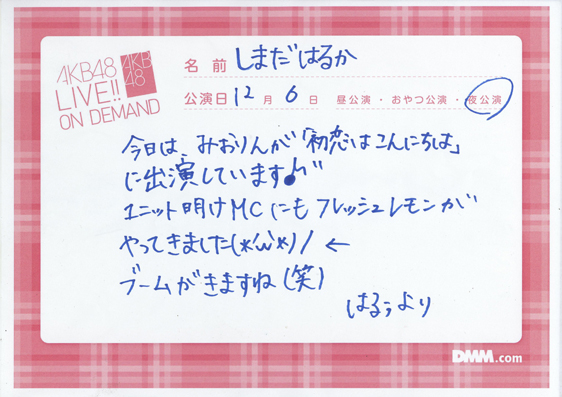 AKB48
LIVE!!
ON DEMAND
AKB
48
名 前 しまだはるか
公演日 12 月 6 日 昼公演 ・ おやつ公演 ・ 夜公演
今日は、みおりんが「初恋はこんにちは」
に出演しています♪"
ユニット明けMCにもフレッシュレモンが
やってきました(*'ω'*)/ ←
ブームがきますね(笑)
はるぅより
DMM.com